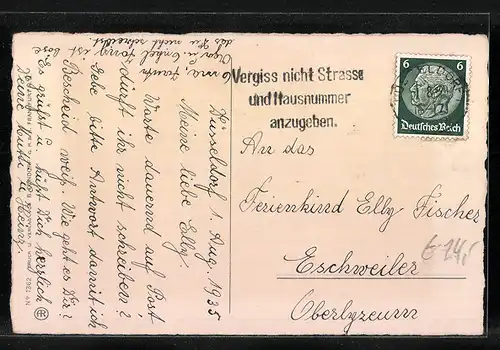 Düsseldorf 1. Aug. 1935
Meine liebe Elly.
Warte dauernd auf Post
dürft ihr nicht schreiben?
Gebe bitte Antwort damit ich
Bescheid weiß. Wie geht es Dir?
Es grüßt u. küßt Dich herzlich
Deine Mutti u Heinz.
Oma, Tante
Opa u. Onkel Jony ist böse
das Du nicht schreibst.
Vergiss nicht Strasse
und Hausnummer
anzugeben.
6 6
Deutsches Reich
An das
Ferienkind Elly Fischer
Eschweiler
Oberlyzeum
€ 14,-